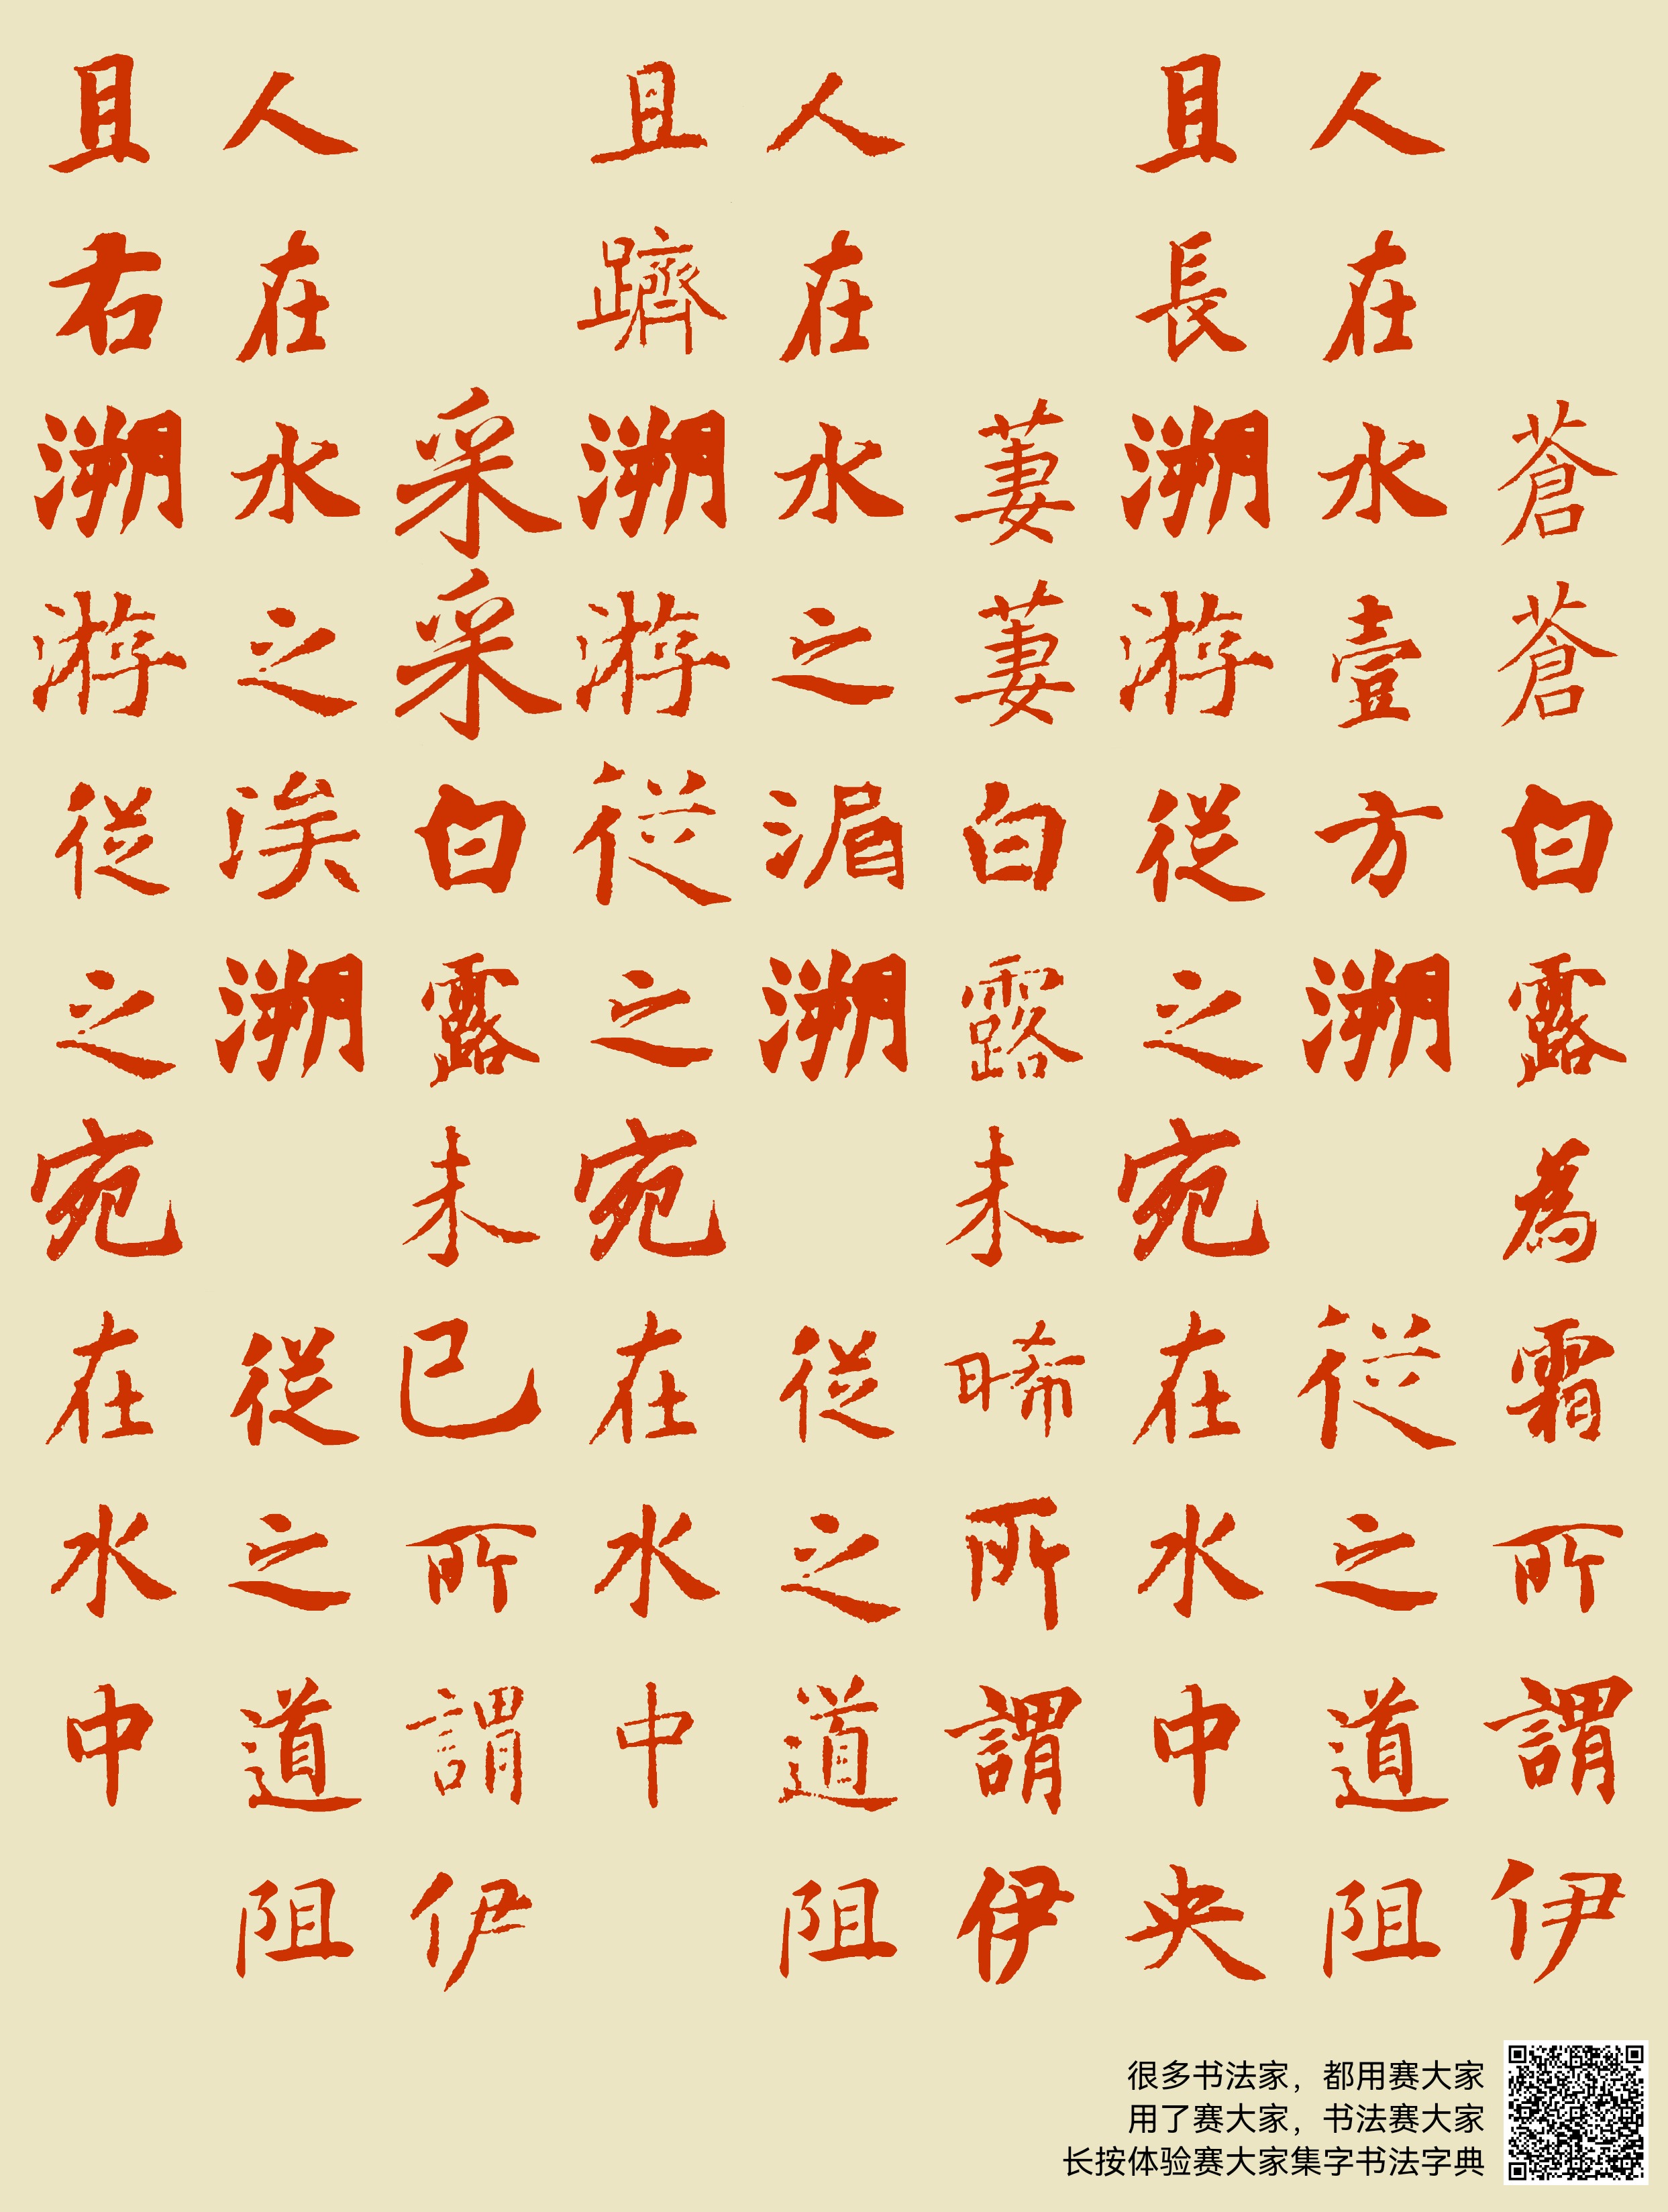 蒼蒼白露為霜所謂伊
人在水壹方溯 從之道阻
且長溯游從之宛在水中央
萋萋白露未晞所謂伊
人在水之湄溯 從之道阻
且躋溯游從之宛在水中
采采白露未已所謂伊
人在水之涘溯 從之道阻
且右溯游從之宛在水中
很多书法家，都用赛大家
用了赛大家，书法赛大家
长按体验赛大家集字书法字典